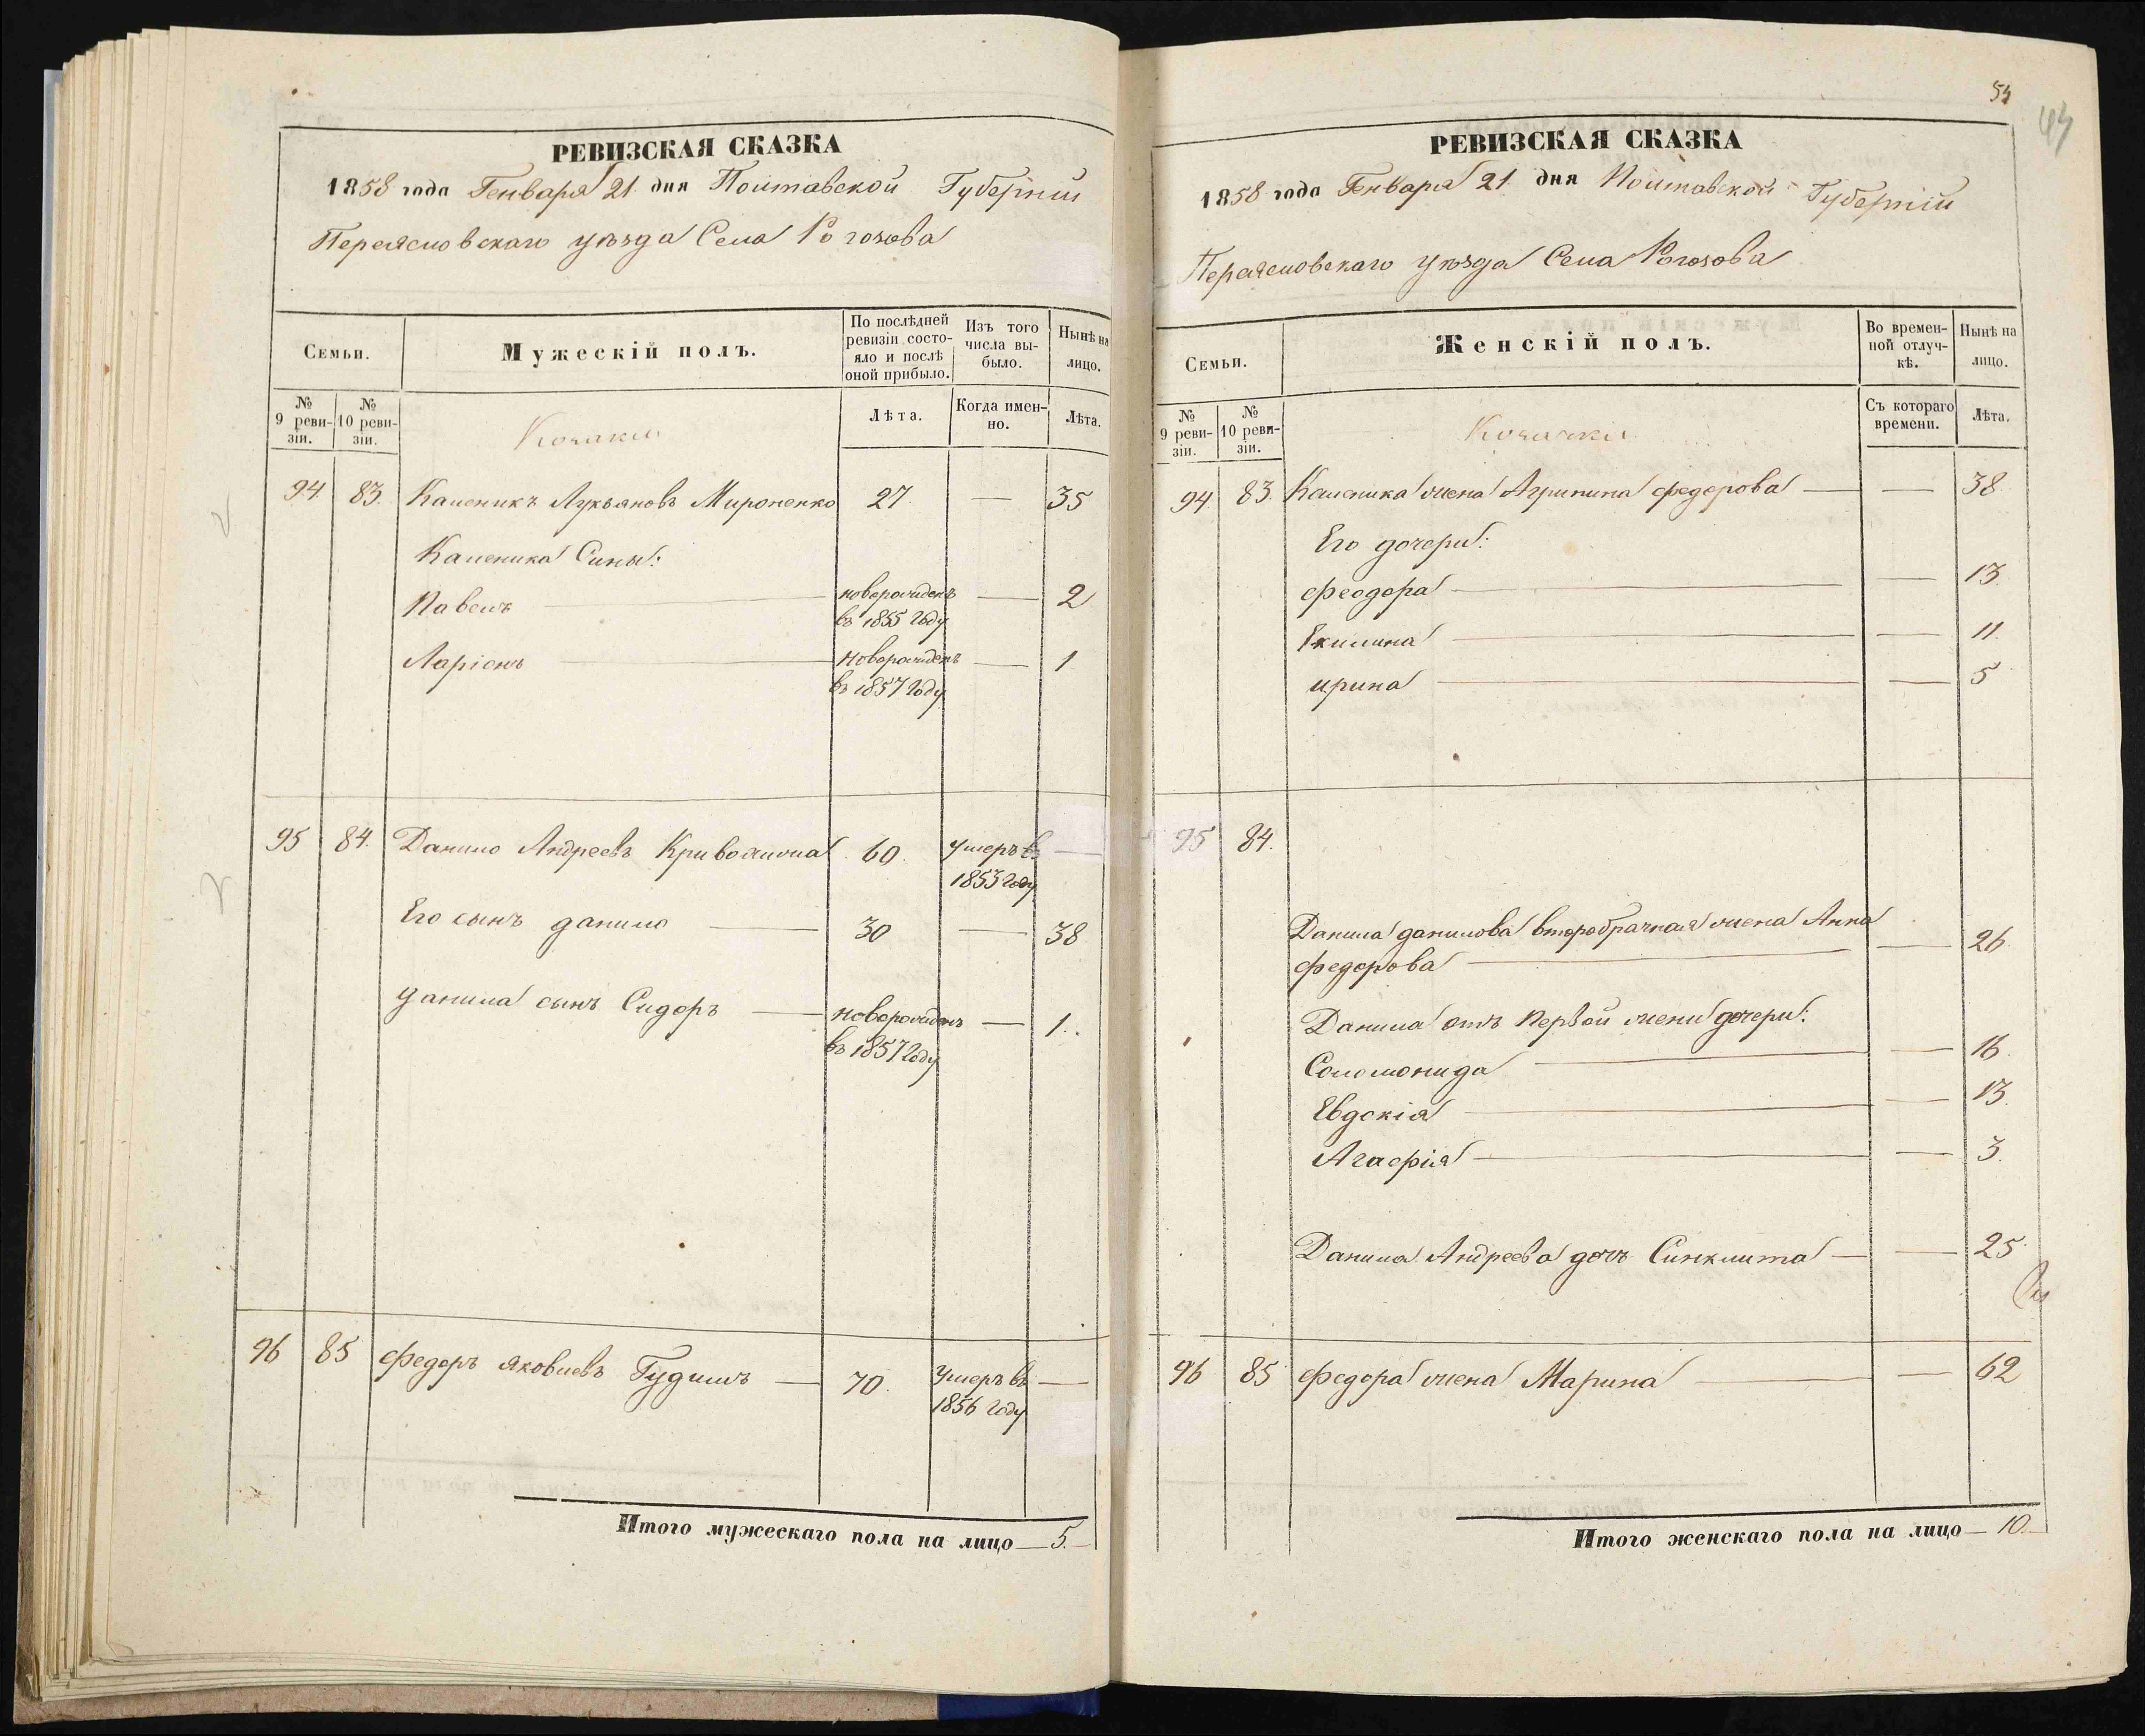 РЕВИЗСКАЯ СКАЗКА
1858 года Генваря 21 дня Полтавской Губерніи
Переясловскаго уѣзда Села Рогозова
Семьи.
Мужескій полъ.
По послѣдней ревизіи состояло и послѣ оной прибыло.
Изъ того числа выбыло.
Нынѣ на лицо.
№ 9 ревизіи.
№ 10 ревизіи.
Козаки
Лѣта.
Когда именно.
Лѣта.
94 83. Каленикъ Лукьяновъ Мироненко 27. — 35
Каленика Сины:
Павелъ — новорожденъ — 2
въ 1855 году
Ларіонъ — новорожденъ — 1
въ 1857 году
95 84. Данило Андреевъ Криволапа 60. умеръ въ —
1853 году
Его сынъ данило — 30 — 38
данила сынъ Сидоръ — новорожденъ — 1.
въ 1857 году
96 85 федоръ яковлевъ — 70. умеръ въ —
1856 году
Итого мужескаго пола на лицо — 5. —
54
43
РЕВИЗСКАЯ СКАЗКА
1858 года Генваря 21 дня Полтавской Губерніи
Переясловскаго уѣзда Села Рогозова
Семьи.
Женскій полъ.
Во временной отлучкѣ.
Нынѣ на лицо.
№ 9 ревизіи.
№ 10 ревизіи.
Козачки
Съ котораго времени.
Лѣта.
94. 83. Каленика жена Агрипина федорова — — 38.
Его дочери:
феодора — — 13.
Екилина — — 11.
ирина — — 5
95 84.
Данила данилова второбрачная жена Анна
федорова — — 26.
Данила отъ первой жени дочери:
Соломонида — — 16.
Евдокія — — 13.
Агафія — — 3.
Данила Андреева дочъ Синклита — — 25
96 85 федора жена Марина — — 62
Итого женскаго пола на лицо — 10. —